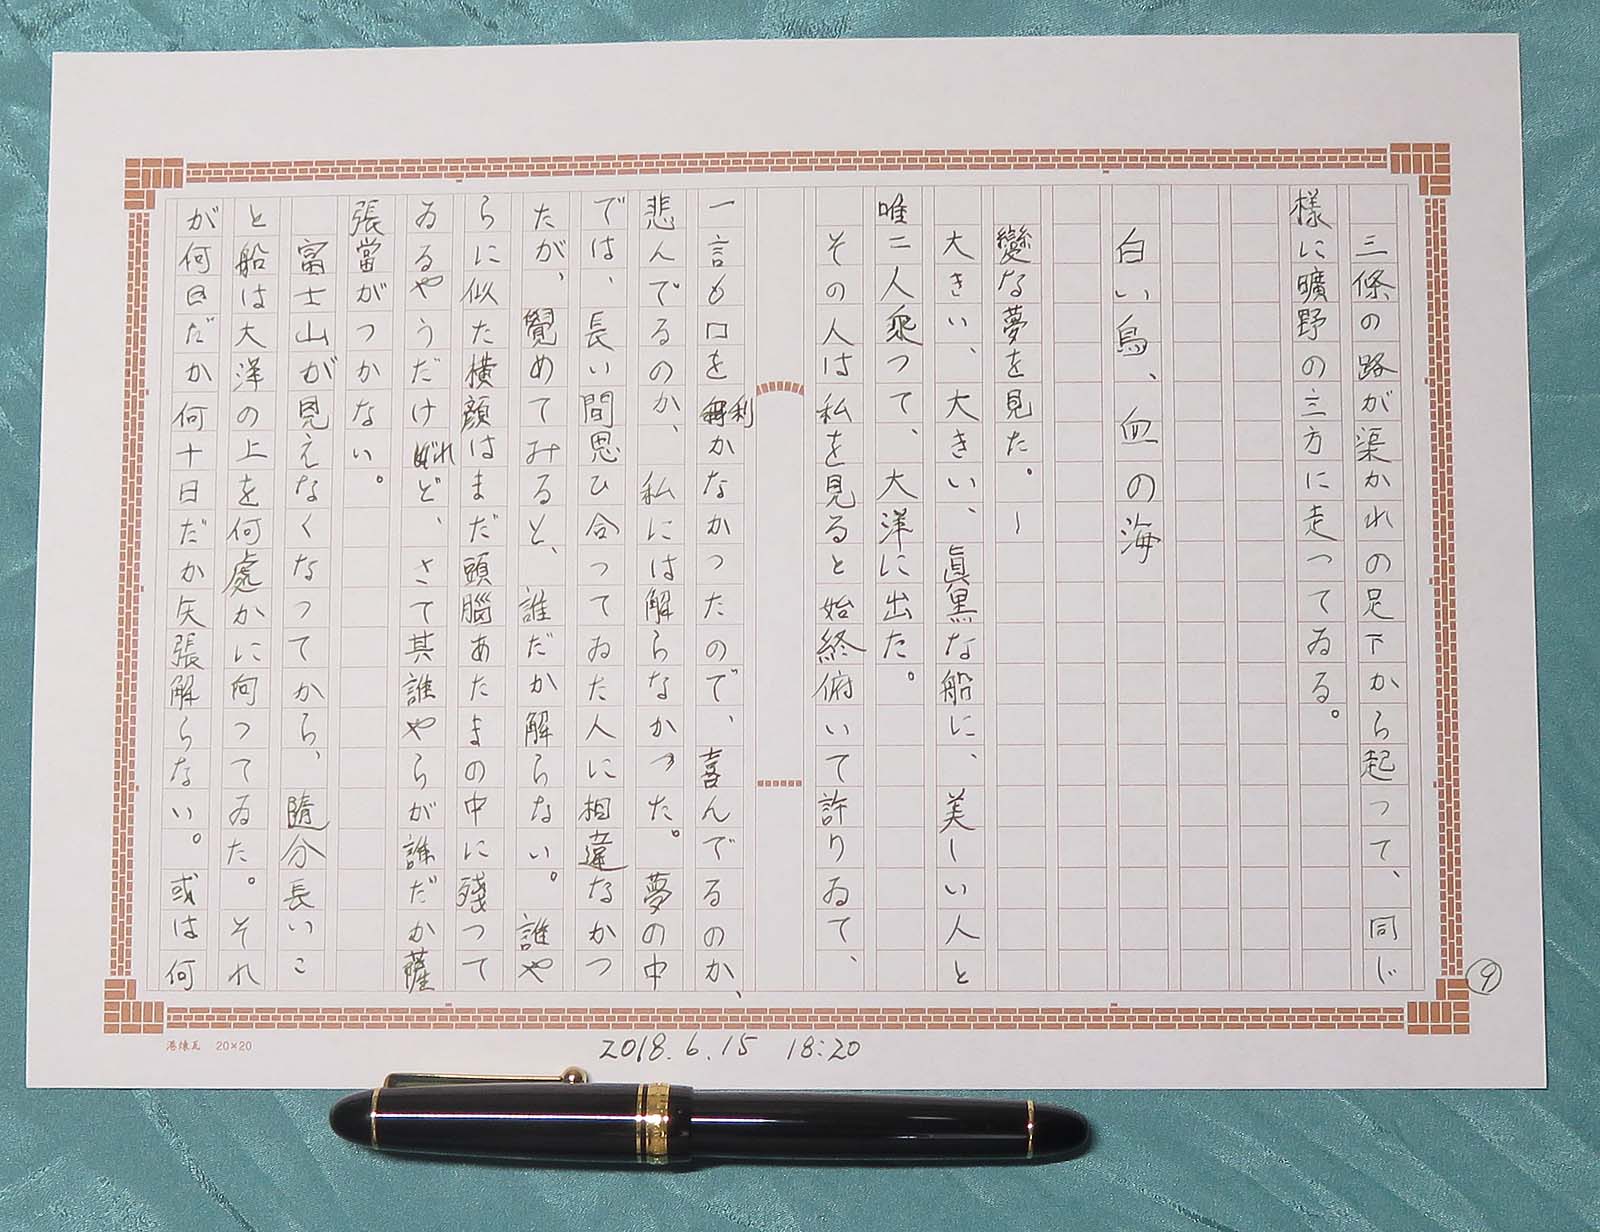 三條の路が渠かれの足下から起って、同じ
様に曠野の三方に走ってゐる。
白い鳥、血の海
變な夢を見た。ー
大きい、大きい、眞黒な船に、美しい人と
唯二人乘つて、大洋に出た。
その人は私を見ると始終俯いて許りゐて、
一言も口を利かなかったので、喜んでるのか、
悲んでるのか、私には解らなかつた。夢の中
では、長い間思ひ合ってゐた人に相違なかつ
たが、覺めてみると、誰だか解らない。誰や
らに似た横顔はまだ頭腦あたまの中に殘つて
ゐるやうだけれど、さて其誰やらが誰だか薩
張當がつかない。
富士山が見えなくなってから、隨分長いこ
と船は大洋の上を何處かに向つてゐた。それ
が何日だか何十日だか矢張解らない。或は何
9
港煉瓦 20×20
2018.6.15 18:20